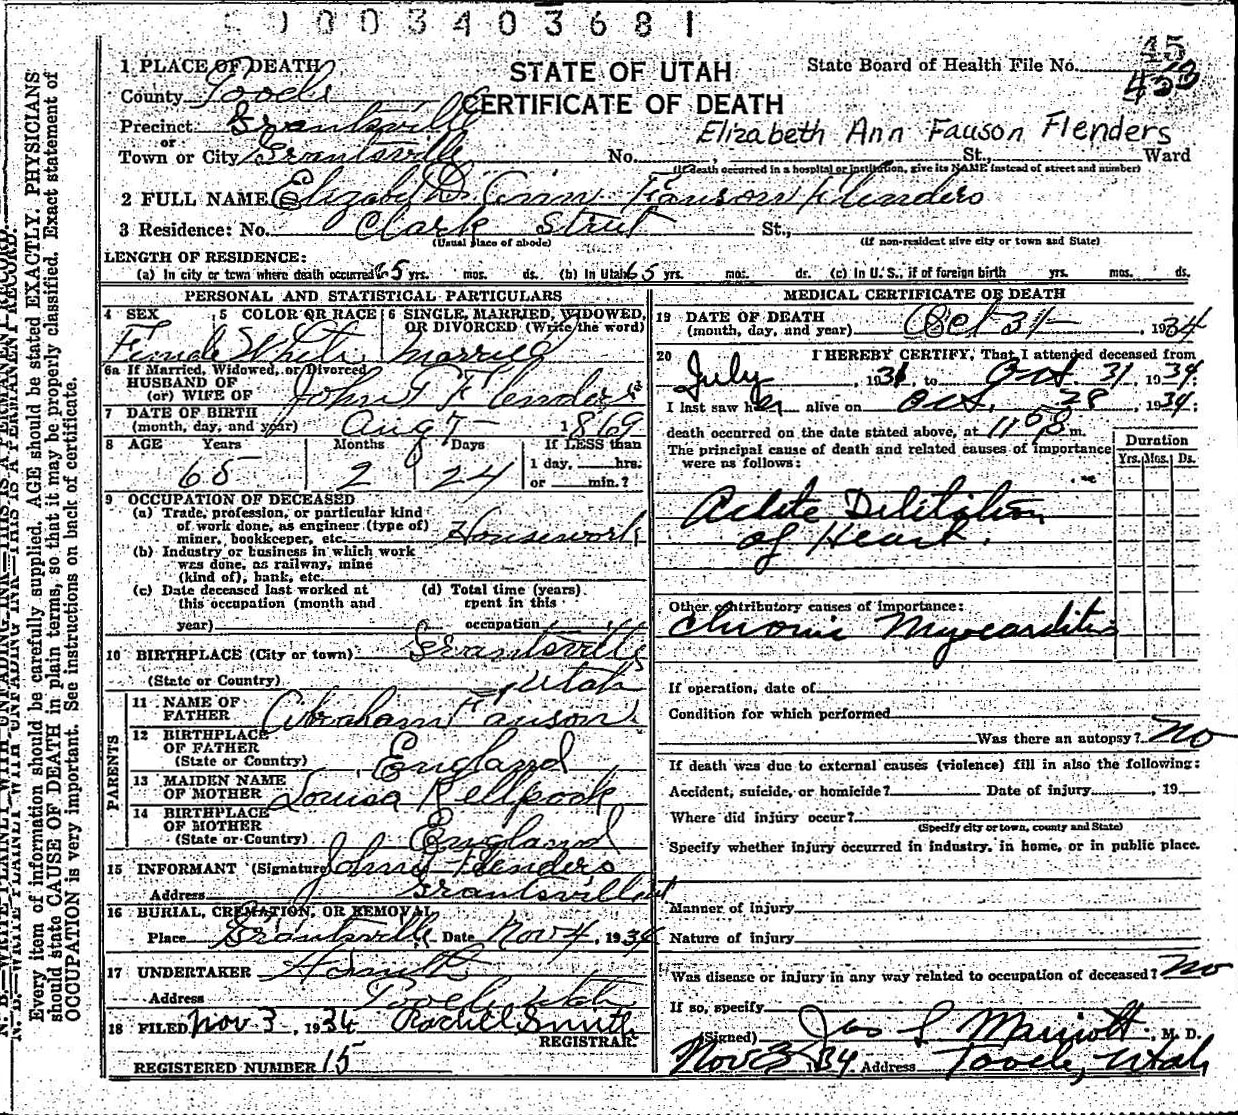 9 1 0 0 3 4 0 3 6 8 1
45
STATE OF UTAH
CERTIFICATE OF DEATH
State Board of Health File No. 433
1 PLACE OF DEATH
County Tooele
Precinct Grantsville
or
Town or City Grantsville No. , St., Ward
Elizabeth Ann Fauson Flenders
(If death occurred in a hospital or institution, give its NAME instead of street and number)
2 FULL NAME Elizabeth Ann Fauson Flenders
3 Residence: No. Clark Street St.,
(Usual place of abode) (If non-resident give city or town and State)
LENGTH OF RESIDENCE:
(a) In city or town where death occurred 65 yrs. mos. ds. (b) In Utah 65 yrs. mos. ds. (c) In U. S., if of foreign birth yrs. mos. ds.
PERSONAL AND STATISTICAL PARTICULARS
4 SEX 5 COLOR OR RACE 6 SINGLE, MARRIED, WIDOWED,
OR DIVORCED (Write the word)
Female White Married
6a If Married, Widowed, or Divorced
HUSBAND OF
(or) WIFE OF John T Flenders
7 DATE OF BIRTH
(month, day, and year) Aug 7- 1869
8 AGE Years Months Days If LESS than
65 2 24 1 day, hrs.
or min.?
9 OCCUPATION OF DECEASED
(a) Trade, profession, or particular kind
of work done, as engineer (type of)
miner, bookkeeper, etc. Housework
(b) Industry or business in which work
was done, as railway, mine
(kind of), bank, etc.
(c) Date deceased last worked at
this occupation (month and
year)
(d) Total time (years)
spent in this
occupation
10 BIRTHPLACE (City or town) Grantsville
(State or Country) Utah
PARENTS
11 NAME OF
FATHER Abraham Fauson
12 BIRTHPLACE
OF FATHER
(State or Country) England
13 MAIDEN NAME
OF MOTHER Louisa Kellpock
14 BIRTHPLACE
OF MOTHER
(State or Country) England
15 INFORMANT (Signature) John T Flenders
Address Grantsville ut
16 BURIAL, CREMATION, OR REMOVAL
Place Grantsville Date Nov 4, 1934
17 UNDERTAKER
Address Tooele Utah
18 FILED Nov 3, 1934 Rachel Smith
REGISTRAR
REGISTERED NUMBER 15
MEDICAL CERTIFICATE OF DEATH
19 DATE OF DEATH
(month, day, and year) Oct 31- , 1934
20 I HEREBY CERTIFY, That I attended deceased from
July , 1931 to Oct 31 1934:
I last saw her alive on Oct. 28 , 1934:
death occurred on the date stated above, at 11 50 P m.
The principal cause of death and related causes of importance
were as follows:
Duration
Yrs. Mos. Ds.
Acute Diletation
of Heart.
Other contributory causes of importance:
Chronic Myocarditis
If operation, date of
Condition for which performed
Was there an autopsy? No
If death was due to external causes (violence) fill in also the following:
Accident, suicide, or homicide? Date of injury , 19
Where did injury occur?
(Specify city or town, county and State)
Specify whether injury occurred in industry, in home, or in public place.
Manner of injury
Nature of injury
Was disease or injury in any way related to occupation of deceased? No
If so, specify
(Signed) Jas L Marriott , M. D.
Nov 3 1934 Address Tooele, Utah
N. B.—WRITE PLAINLY WITH UNFADING INK—THIS IS A PERMANENT RECORD.
Every item of information should be carefully supplied. AGE should be stated EXACTLY. PHYSICIANS
should state CAUSE OF DEATH in plain terms, so that it may be properly classified. Exact statement of
OCCUPATION is very important. See instructions on back of certificate.